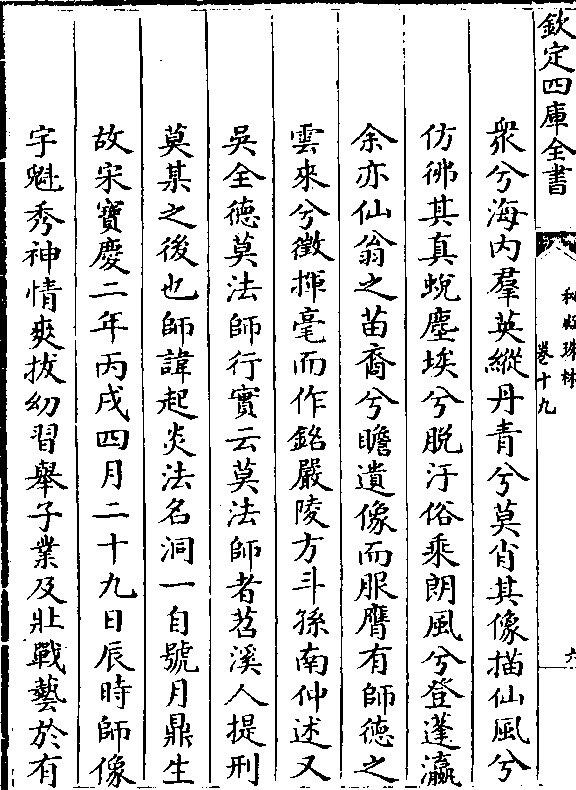 欽定四庫全書
秘殿珠林
卷十九
六
衆兮海内羣英縱丹青兮莫肖其像描仙風兮
仿彿其真蛻塵埃兮脱汙俗乘朗風兮登蓬瀛
余亦仙翁之苗裔兮瞻遺像而服膺有師德之
雲來兮徵揮毫而作銘嚴陵方斗孫南仲述又
吳全德莫法師行實云莫法師者苕溪人提刑
莫某之後也師諱起炎法名洞一自號月鼎生
故宋寶慶二年丙戌四月二十九日辰時師像
宇魁秀神情爽拔幼習舉子業及壯戰藝於有